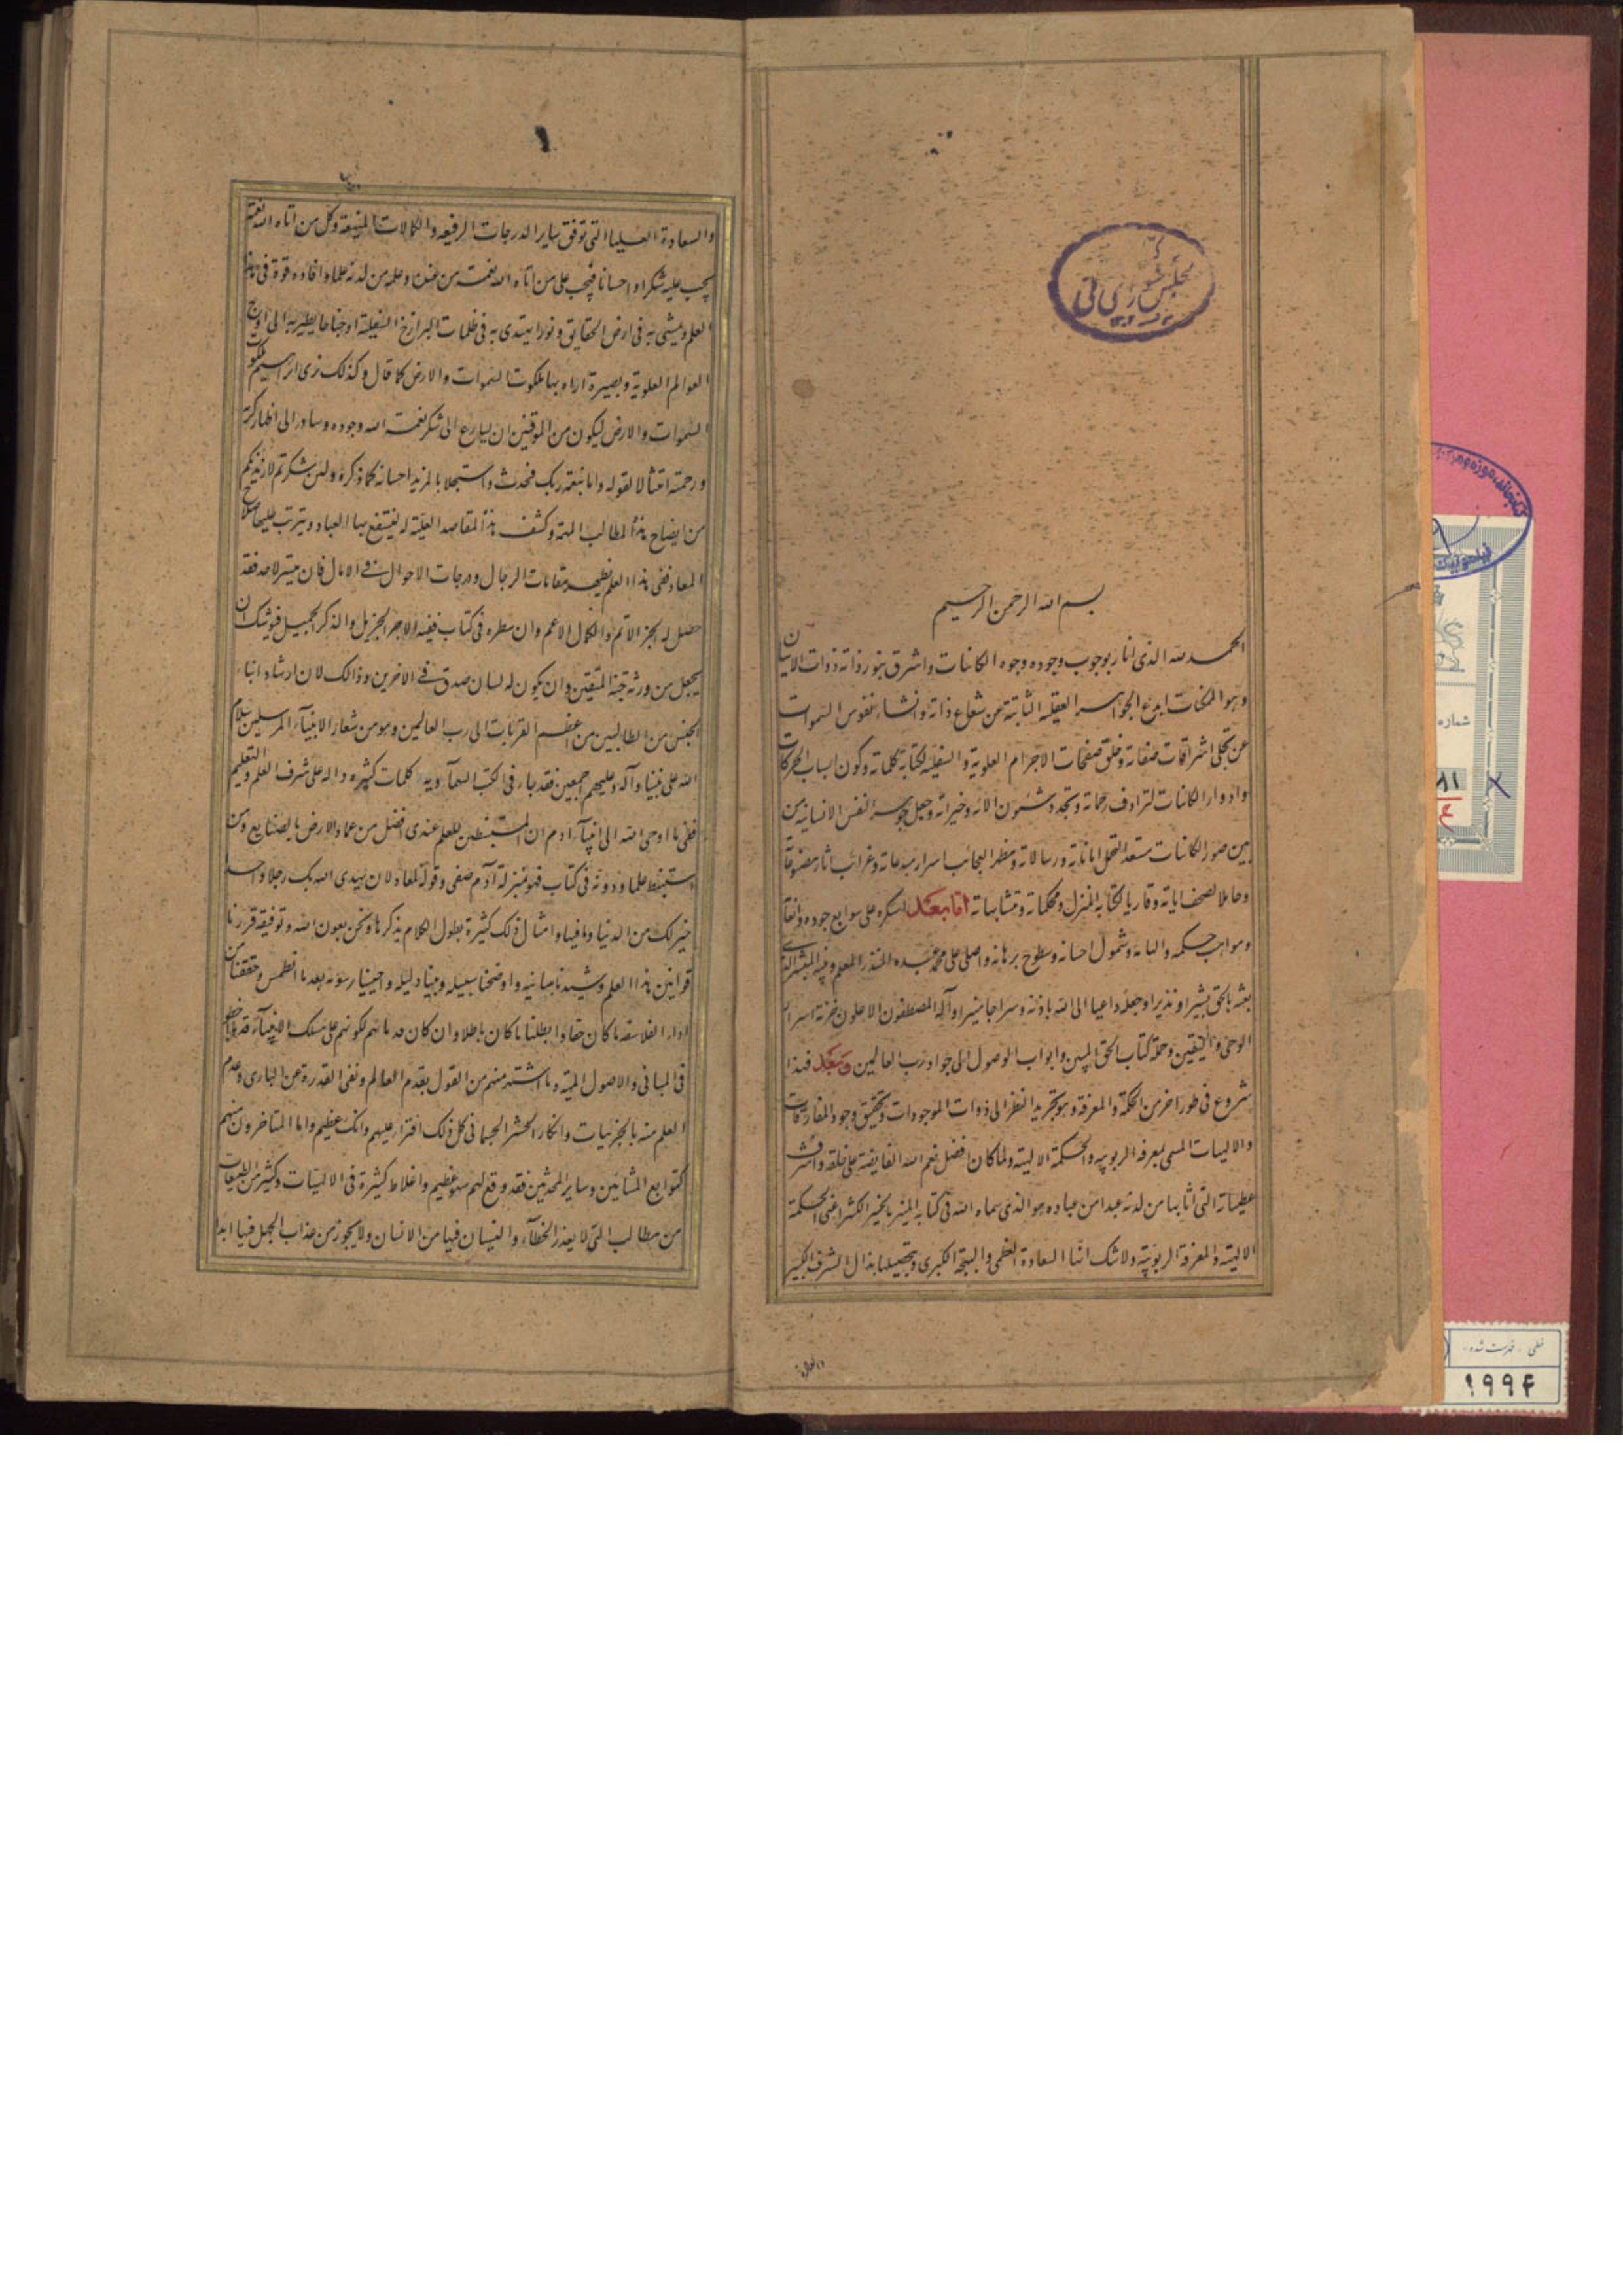 بسم الله الرحمن الرحیم
الحمد لله الذی انار بوجوب وجوده وجوه الکائنات واشرق بنور ذاته ذوات الانیات
وهو الممکنات ابدع الجواهر العقلیه الثابتة من شعاع ذاته وانشاء نفوس السموات
عن تجلی اشراقات صفاته وخلق صفحات الاجرام العلویة والسفلیة لکتابة کلماته وکون اسباب الحرکات
وادوار الکائنات لترادف رحماته وتجدد شئون الائه وخیراته وجعل جوهر النفس الانسانیه من
بین صور الکائنات مستعد التحمل اماناته ورسالاته ومظهر العجائب اسرار مبدعاته وغرائب اثار مصنوعاته
وحاملا لصحف ایاته وقاریا لکتابه المنزل ومحکماته ومتشابهاته اما بعد اشکره علی سوابغ جوده وانعامه
ومواهب حکمه والهامه وشمول احسانه وسطوح برهانه واصلی علی محمد عبده المنذر المعلم ونبیه المبشر الذی
بعثه بالحق بشیرا ونذیرا وجعله داعیا الی الله باذنه وسراجا منیرا وآله المصطفون الاعلون خزنة اسرار
الوحی والیقین وحملة کتاب الحق المبین وابواب الوصول الی جوار رب العالمین وبعد فهذا
شروع فی طور اخر من الحکمة والمعرفة وهو تجرید النظر الی ذوات الموجودات وتحقیق وجود المفارقات
والالهیات المسمی بمعرفة الربوبیه والحکمة الالهیة ولما کان افضل نعم الله الفایضة علی خلقه واشرف
عطیاته التی اتابها من لدنه عبدا من عباده هو الذی سماه الله فی کتابه المنیر بالخیر الکثیر اعنی الحکمة
الالهیة والمعرفة الربوبیة ولا شک انها السعادة العظمی والبهجة الکبری وبتحصیلها ینال الشرف الکبیر
والسعادة
والسعادة العلیا التی تفوق سایر الدرجات الرفیعه والکمالات المنیعة وکل من اتاه الله نعمة
یجب علیه شکرا واحسانا فیجب علی من اتاه الله نعمة من عنده وعلمه من لدنه علما وافاده قوة فی هذا
العلم ویمشی به فی ارض الحقایق ونورا یهتدی به فی ظلمات البرازخ السفلیة او جناحا یطیر به الی اوج
العوالم العلویة وبصیرة اراه بها ملکوت السموات والارض کما قال وکذلک نری ابراهیم ملکوت
السموات والارض لیکون من الموقنین ان یسارع الی شکر نعمة الله وجوده وسادر الی اظهار کرمه
ورحمته امتثالا لقوله واما بنعمة ربک فحدث واستجلابا لمزید احسانه کما ذکره ولئن شکرتم لازیدنکم
من ایضاح هذا المطالب المهمة وکشف هذا المقاصد العلیة لینتفع بها العباد ویترتب علیها صلاح
المعاد ففی هذا العلم تظهر مقامات الرجال ودرجات الاحوال فی الامال فان میسر لاحد فقد
حصل له الجز الاتم والکمال الاعم وان سطره فی کتاب ففیه الاجر الجزیل والذکر الجمیل فیوشک ان
یجعل من ورثة جنة المتقین وان یکون له لسان صدق فی الاخرین وذالک لان ارشاد ابناء
الجنس من الطالبین من اعظم القربات الی رب العالمین وهو من شعار الانبیاء المرسلین سلام
الله علی نبینا وآله وعلیهم اجمعین فقد جاء فی الکتب السماویه کلمات کثیره داله علی شرف العلم والتعلیم
ففی ما اوحی الله الی انبیاء ادم ان المستنبطین للعلم عندی افضل من عمار الارض بالصنایع ومن
استنبط علما ودونه فی کتاب فهو بمنزلة آدم صفی وقوله لمعاذ لان یهدی الله بک رجلا واحد
خیر لک من الدنیا وما فیها وامثال ذلک کثیرة یطول الکلام بذکرها ونحن بعون الله وتوفیقه قررنا
قوانین هذا العلم وشیدنا مبانیه واوضحنا سبیله وبینا دلیله واحیینا رسومه بعد ما انطمس وحققنا من
اراء الفلاسفه ما کان حقا وابطلنا ما کان باطلا وان کان قدماهم لکونهم علی مسلک الانبیاء قد
فی المبانی والاصول المهمة وما اشتهر منهم من القول بقدم العالم ونفی القدرة عن الباری وعدم
العلم منه بالجزئیات وانکار الحشر الجسمانی کل ذلک افتراء علیهم وافک عظیم واما المتاخرون منهم
کتوابع المشائین وسایر المحدثین فقد وقع لهم سهو عظیم واغلاط کثیرة فی الالهیات وکثیر من الطبیعیات
من مطالب التی لا یعذر الخطاء والنسیان فیها من الانسان ولا یجوز من عذاب الجهل فیها ابدا
مجلس شورای ملی
شماره
خطی - فهرست شده
۱۹۹۴